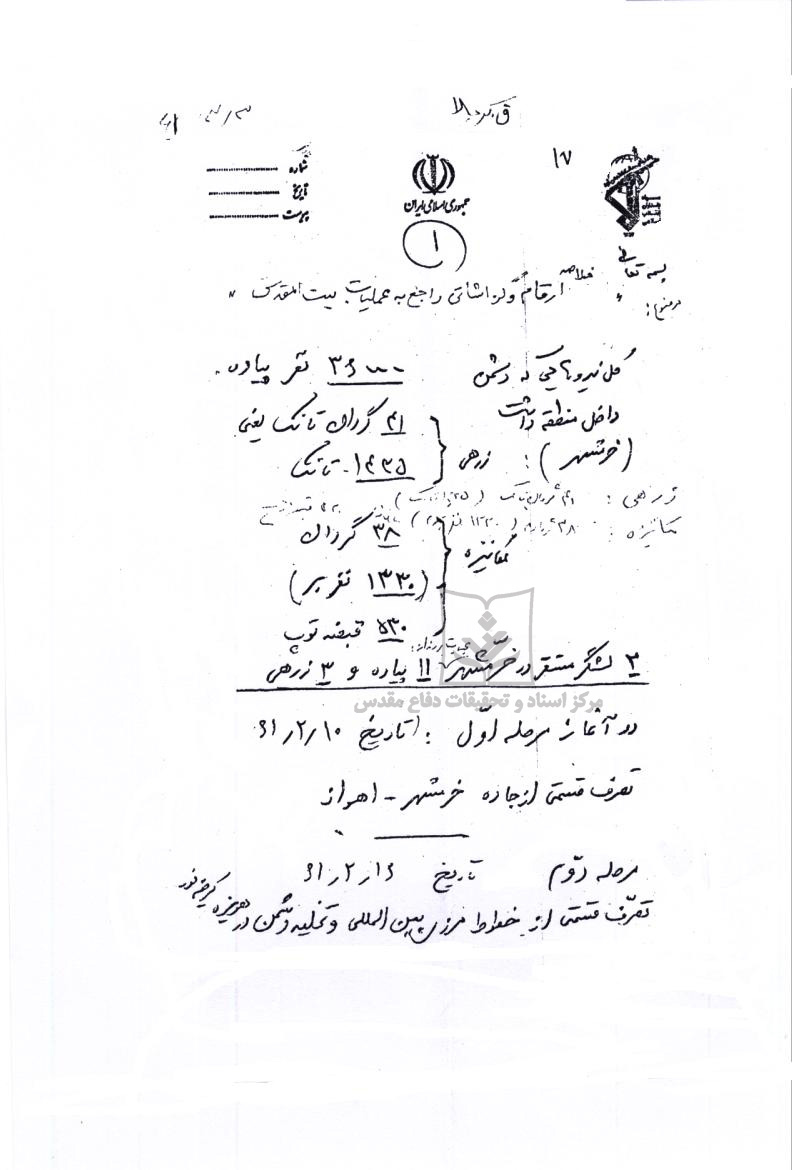 ق کربلا
۱۷
جمهوری اسلامی ایران
شماره
تاریخ
پیوست
۱
بسمه تعالی
موضوع: خلاصه ارقام و گزارشاتی راجع به عملیات بیت المقدس
کل نیروهایی که دشمن ۳۶۰۰۰ نفر پیاده.
داخل منطقه داشت ۴۱ گردان تانک یعنی
(خرمشهر): زرهی ۱۴۳۵ تانک
زرهی: ۴۱ گردان تانک
مکانیزه: ۳۸ گردان
مکانیزه ۳۸ گردان
(۱۳۳۰ نفربر)
۵۳۰ قبضه توپ
۳ لشگر مستقر در خرمشهر ۱۱ پیاده و ۳ زرهی
مرکز اسناد و تحقیقات دفاع مقدس
در آغاز مرحله اول: (تاریخ ۶۱/۲/۱۰
تصرف قسمتی از جاده خرمشهر - اهواز
مرحله دوم تاریخ ۶۱/۲/۱۶
تصرف قسمتی از خطوط مرزی بین المللی و تخلیه دشمن در هویزه کرخه نور